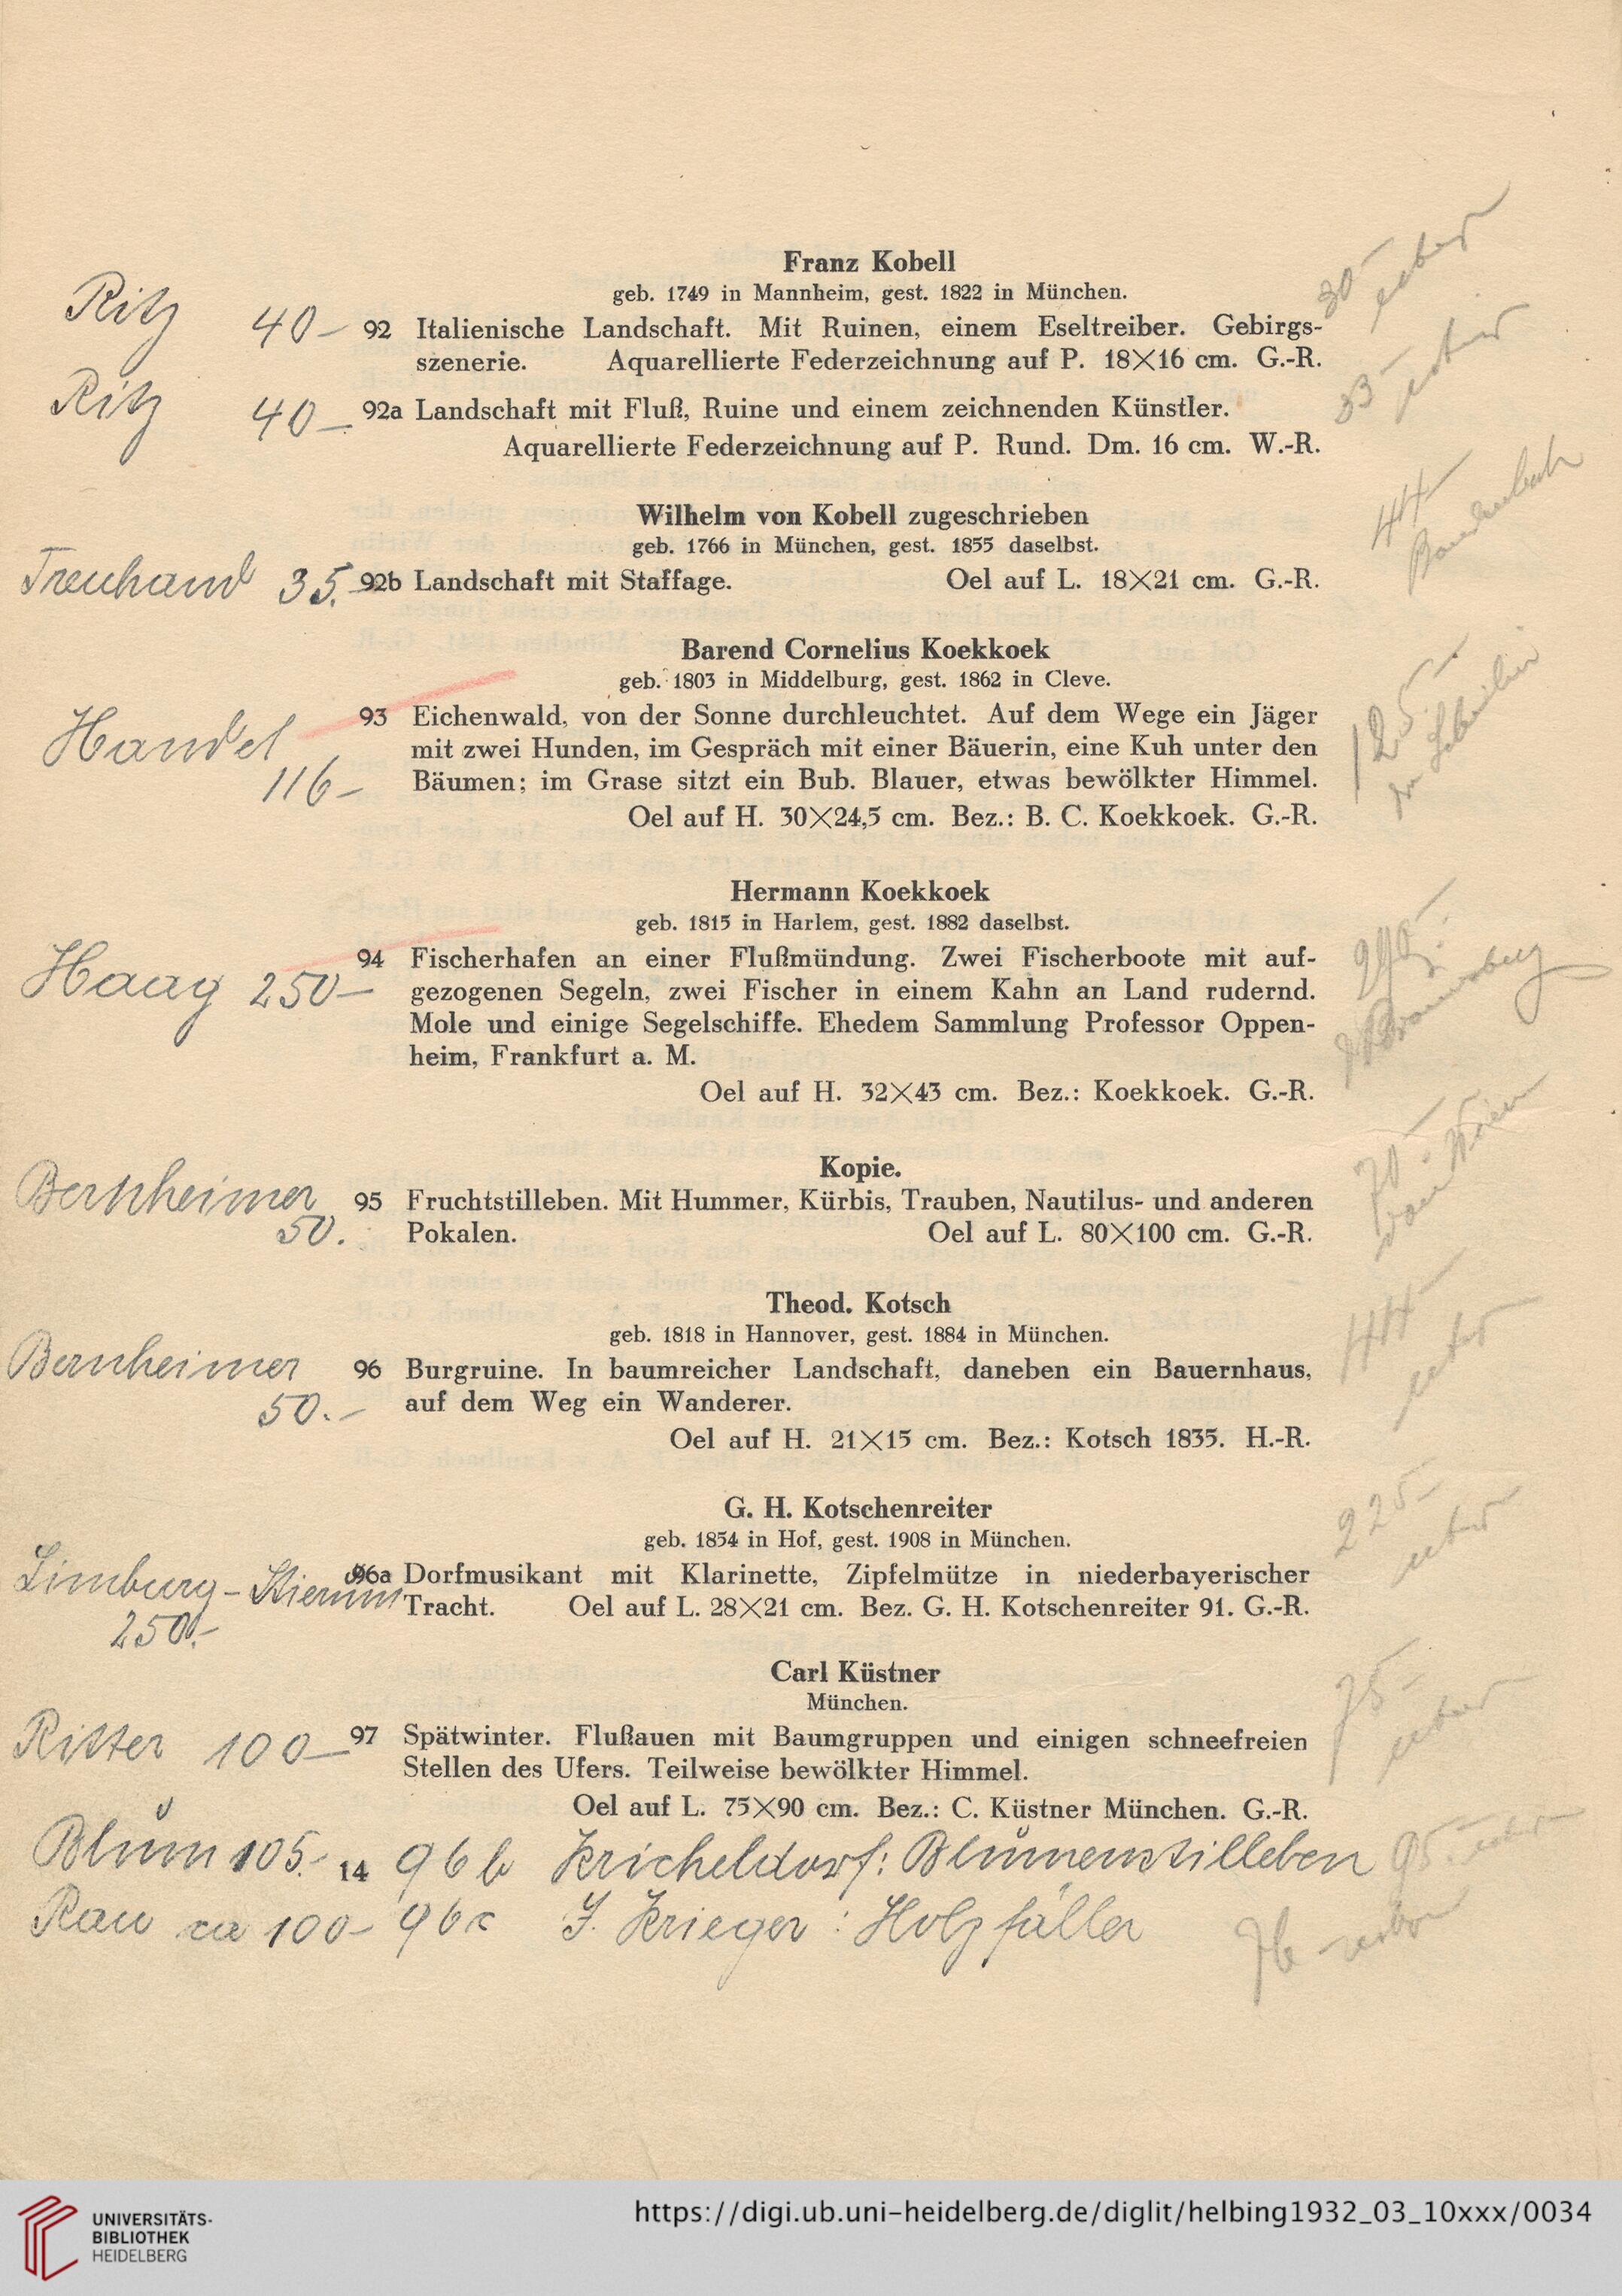 Franz Kobell
geb. 1749 in Mannheim, gest. 1822 in München.
Ritz 40– 92 Italienische Landschaft. Mit Ruinen, einem Eseltreiber. Gebirgs-
szenerie. Aquarellierte Federzeichnung auf P. 18×16 cm. G.-R.
30–
Ritz 40– 92a Landschaft mit Fluß, Ruine und einem zeichnenden Künstler.
Aquarellierte Federzeichnung auf P. Rund. Dm. 16 cm. W.-R.
33–
Wilhelm von Kobell zugeschrieben
geb. 1766 in München, gest. 1855 daselbst.
Treuhand 35.– 92b Landschaft mit Staffage. Oel auf L. 18×21 cm. G.-R.
44–
Barend Cornelius Koekkoek
geb. 1803 in Middelburg, gest. 1862 in Cleve.
Handel 93 Eichenwald, von der Sonne durchleuchtet. Auf dem Wege ein Jäger
116– mit zwei Hunden, im Gespräch mit einer Bäuerin, eine Kuh unter den
Bäumen; im Grase sitzt ein Bub. Blauer, etwas bewölkter Himmel.
Oel auf H. 30×24,5 cm. Bez.: B. C. Koekkoek. G.-R.
125–
Hermann Koekkoek
geb. 1815 in Harlem, gest. 1882 daselbst.
94 Fischerhafen an einer Flußmündung. Zwei Fischerboote mit auf-
Haag 250– gezogenen Segeln, zwei Fischer in einem Kahn an Land rudernd.
Mole und einige Segelschiffe. Ehedem Sammlung Professor Oppen-
heim, Frankfurt a. M.
Oel auf H. 32×43 cm. Bez.: Koekkoek. G.-R.
Kopie.
Bernheimer 95 Fruchtstilleben. Mit Hummer, Kürbis, Trauben, Nautilus- und anderen
50. Pokalen. Oel auf L. 80×100 cm. G.-R.
70–
Theod. Kotsch
geb. 1818 in Hannover, gest. 1884 in München.
Bernheimer 96 Burgruine. In baumreicher Landschaft, daneben ein Bauernhaus,
50.– auf dem Weg ein Wanderer.
Oel auf H. 21×15 cm. Bez.: Kotsch 1835. H.-R.
44–
G. H. Kotschenreiter
geb. 1854 in Hof, gest. 1908 in München.
Limburg-Stierum 96a Dorfmusikant mit Klarinette, Zipfelmütze in niederbayerischer
250.– Tracht. Oel auf L. 28×21 cm. Bez. G. H. Kotschenreiter 91. G.-R.
225–
Carl Küstner
München.
Ritter 100– 97 Spätwinter. Flußauen mit Baumgruppen und einigen schneefreien
Stellen des Ufers. Teilweise bewölkter Himmel.
Oel auf L. 75×90 cm. Bez.: C. Küstner München. G.-R.
75–
Blum 105.– 14 96b Kricheldorf: Blumenstilleben 95.–
Rau ca 100– 96c J. Krieger: Holzfäller
UNIVERSITÄTS-
BIBLIOTHEK
HEIDELBERG
https://digi.ub.uni-heidelberg.de/diglit/helbing1932_03_10xxx/0034